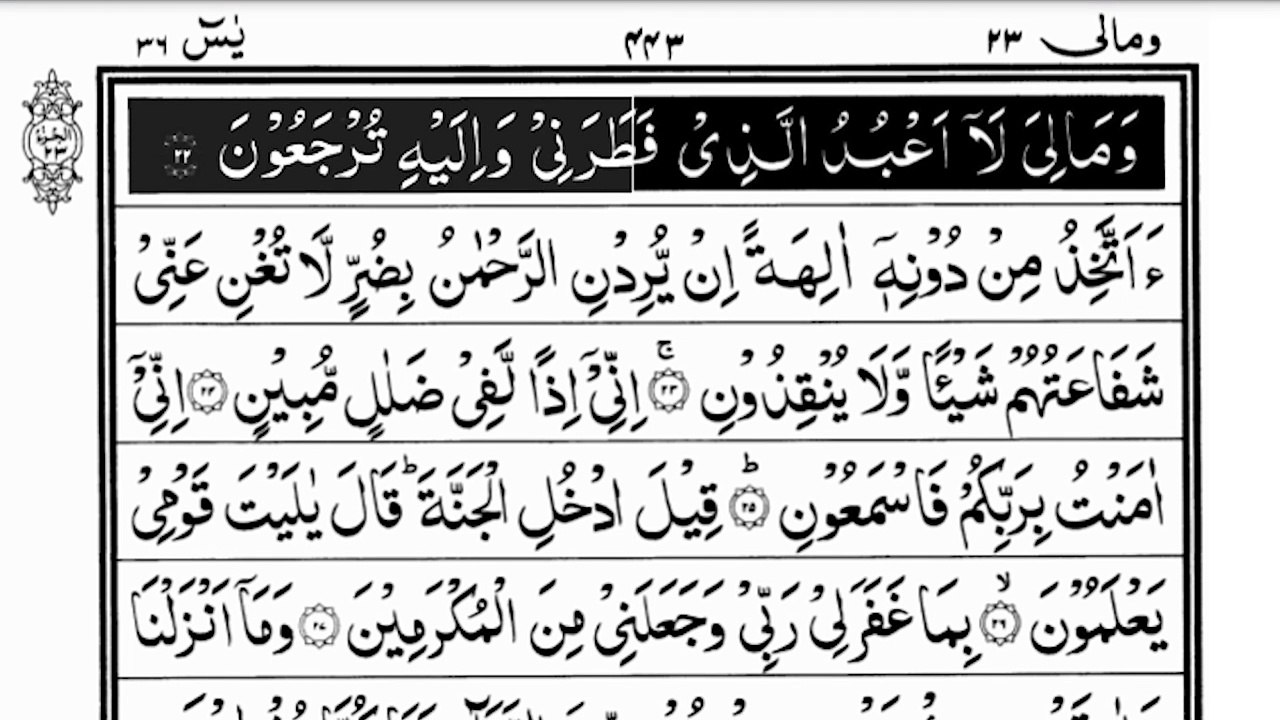 ومالی ٢٣ ٤٤٣ يٰسٓ ٣٦
الجزء ٢٣
وَمَالِیَ لَآ اَعْبُدُ الَّذِیْ فَطَرَنِیْ وَاِلَیْهِ تُرْجَعُوْنَ ٢٢
ءَاَتَّخِذُ مِنْ دُوْنِهٖٓ اٰلِهَةً اِنْ یُّرِدْنِ الرَّحْمٰنُ بِضُرٍّ لَّا تُغْنِ عَنِّیْ
شَفَاعَتُهُمْ شَیْـًٔا وَّلَا یُنْقِذُوْنِ ۚ ٢٣ اِنِّیْٓ اِذًا لَّفِیْ ضَلٰلٍ مُّبِیْنٍ ٢٤ اِنِّیْٓ
اٰمَنْتُ بِرَبِّكُمْ فَاسْمَعُوْنِ ؕ ٢٥ قِیْلَ ادْخُلِ الْجَنَّةَ ؕ قَالَ یٰلَیْتَ قَوْمِیْ
یَعْلَمُوْنَ ۙ ٢٦ بِمَا غَفَرَ لِیْ رَبِّیْ وَجَعَلَنِیْ مِنَ الْمُكْرَمِیْنَ ٢٧ وَمَآ اَنْزَلْنَا